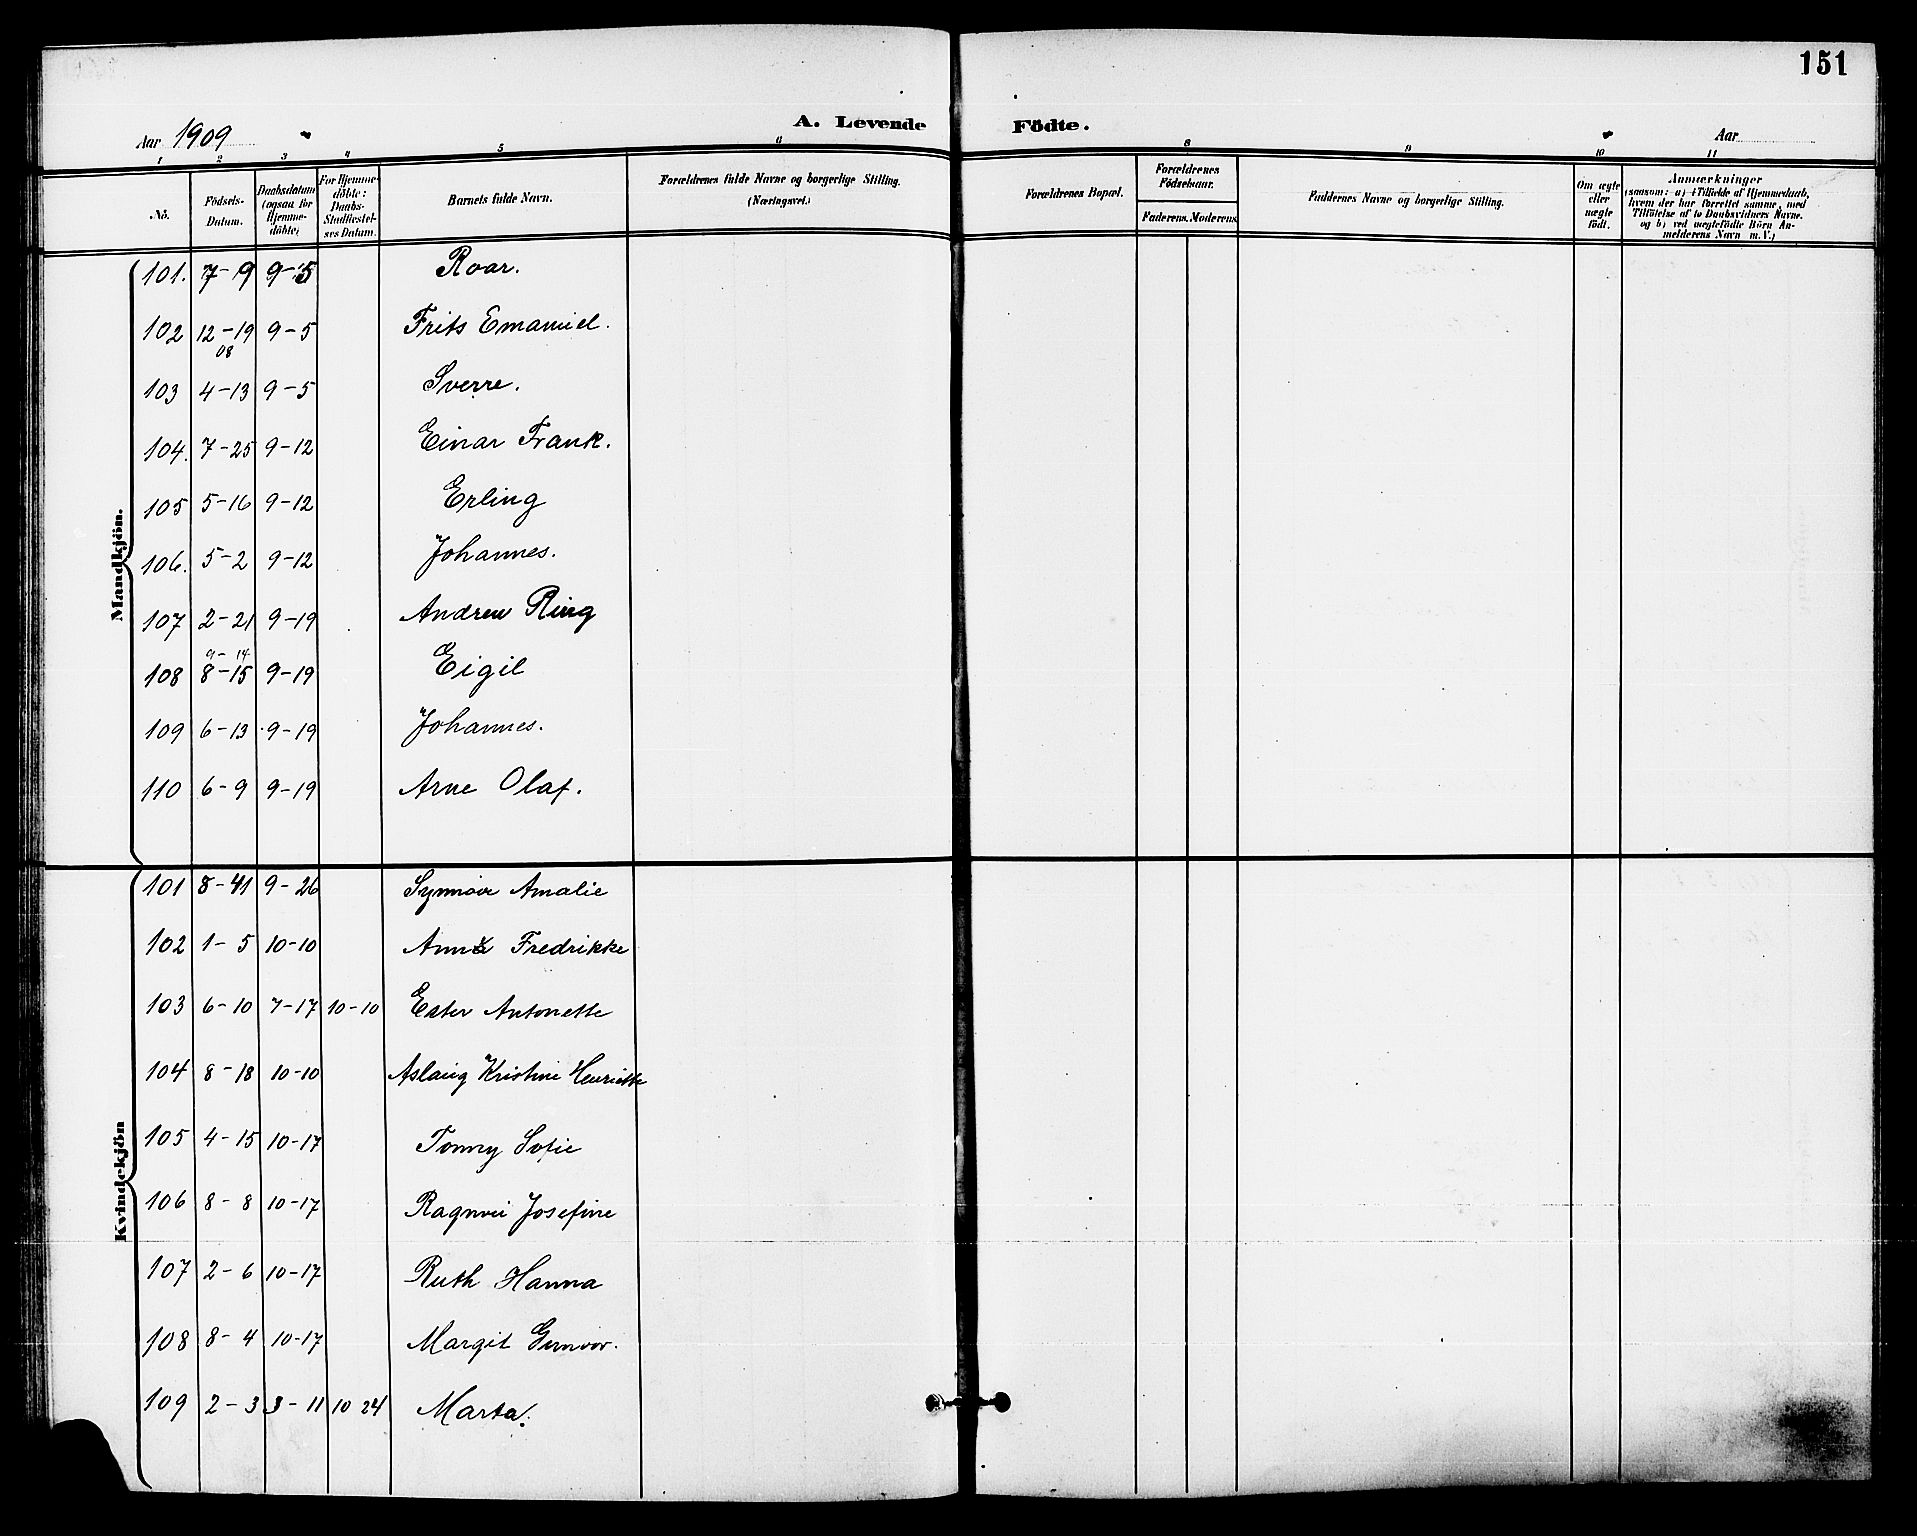 151
Aar 1909 A. Levende Födte. Aar
1 2 3 4 5 6 8 9 10 11
No. Födsels-Datum. Daabsdatum (ogsaa for Hjemme-döbte) For Hjemme-döbte: Daabs-Stadfæstel-ses Datum. Barnets fulde Navn. Forældrenes fulde Navne og borgerlige Stilling. (Næringsvei.) Forældrenes Bopæl. Forældrenes Födselsaar. Faderens. Moderens. Faddernes Navne og borgerlige Stilling. Om ægte eller uægte födt. Anmærkninger (saasom: a) i Tilfælde af Hjemmedaab, hvem der har forrettet samme, med Tilföielse af to Daabsvidners Navne. og b) ved uægtefödte Börn An-melderens Navn m. V.)
Mandkjön.
101. 7-9 9-5 Roar.
102 12-19 9-5 Frits Emanuel.
08
103 4-13 9-5 Sverre.
104. 7-25 9-12 Einar Frank.
105 5-16 9-12 Erling
106. 5-2 9-12 Johannes.
107 2-21 9-19 Andreu Ring
9-14
108 8-15 9-19 Eigil
109 6-13 9-19 Johannes.
110 6-9 9-19 Arne Olaf.
Kvindekjön
101 8-41 9-26 Synnöve Amalie
102 1-5 10-10 Anna Fredrikke
103 6-10 7-17 10-10 Ester Antonette
104 8-18 10-10 Aslaug Kristine Henriette
105 4-15 10-17 Tonny Sofie
106 8-8 10-17 Ragnvei Josefine
107 2-6 10-17 Ruth Hanna
108 8-4 10-17 Margit Gunvor.
109 2-3 3-11 10 24 Marta.